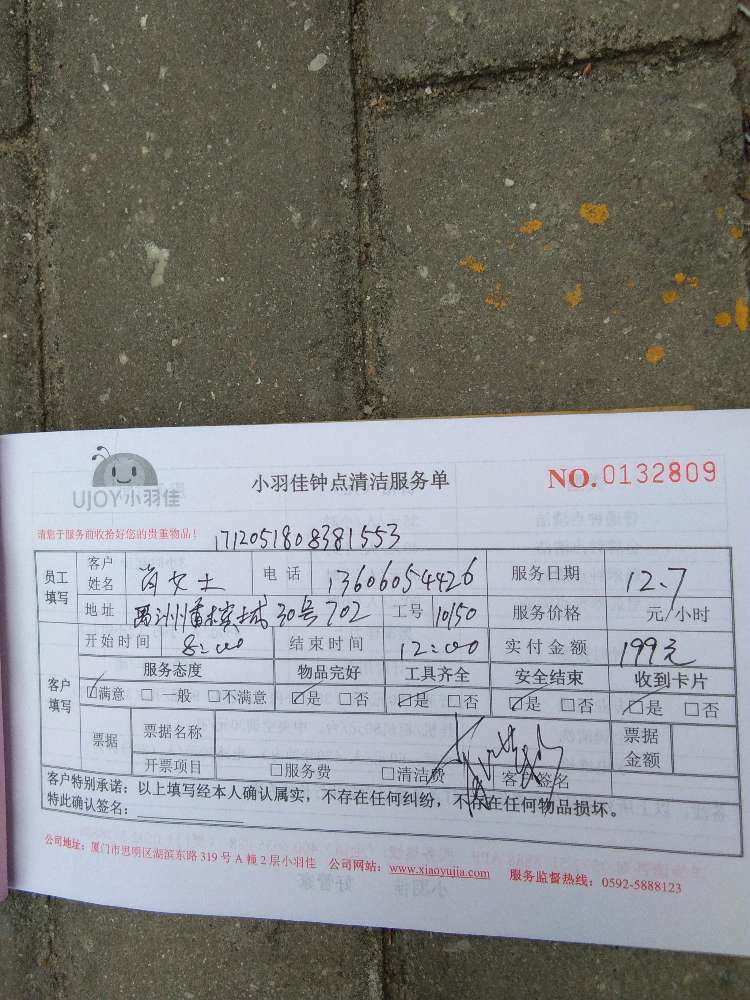 UJOY·小羽佳
小羽佳钟点清洁服务单
NO.0132809
请您于服务前收拾好您的贵重物品!
1712051808381553
员工填写 客户姓名 肖女士 电话 13606054426 服务日期 12.7
地址 30号702 工号 10150 服务价格 元/小时
开始时间 8:00 结束时间 12:00 实付金额 199元
客户填写 服务态度 物品完好 工具齐全 安全结束 收到卡片
☑满意 □一般 □不满意 ☑是 □否 ☑是 □否 ☑是 □否 ☑是 □否
票据 票据名称 票据金额
开票项目 □服务费 □清洁费 客户签名
客户特别承诺：以上填写经本人确认属实，不存在任何纠纷，不存在任何物品损坏。
特此确认签名：
公司地址：厦门市思明区湖滨东路319号A幢2层小羽佳 公司网站：www.xiaoyujia.com 服务监督热线：0592-5888123